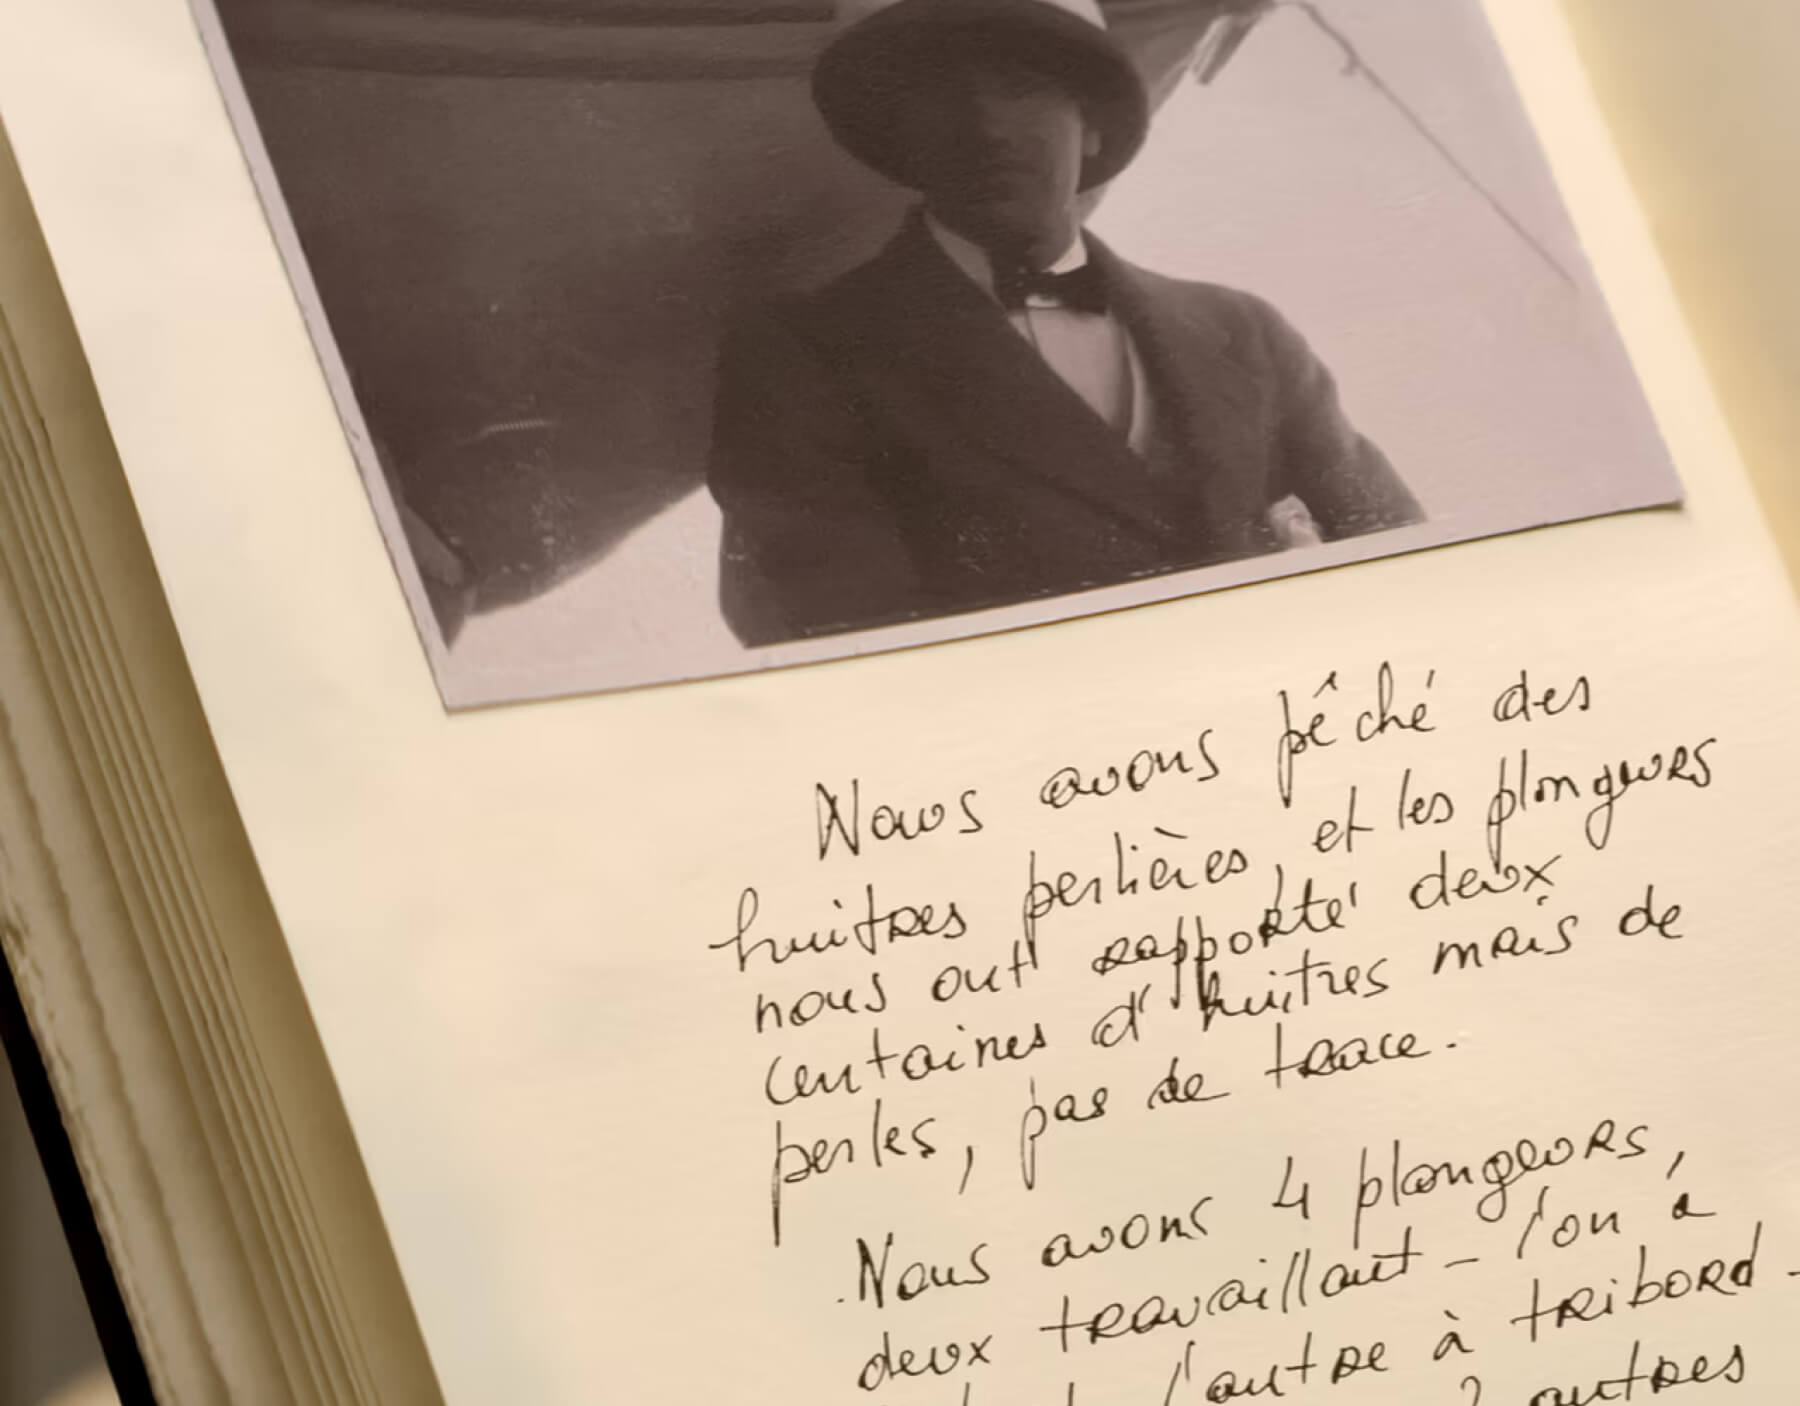 Nous avons pêché des
huitres perlières, et les plongeurs
nous ont rapporté deux
centaines d'huitres mais de
perles, pas de trace.
Nous avons 4 plongeurs,
deux travaillant - l'on à
l'autre à tribord -
2 autres